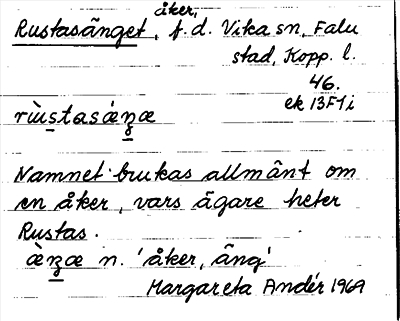 åker,
Rustasänget, f.d. Vika sn, Falu
stad, Kopp. l.
46.
ek 13F1i
rùstasǽꞑæ
Namnet brukas allmänt om
en åker, vars ägare heter
Rustas.
æ̀ꞑæ n. 'åker, äng'
Margareta Andér 1969